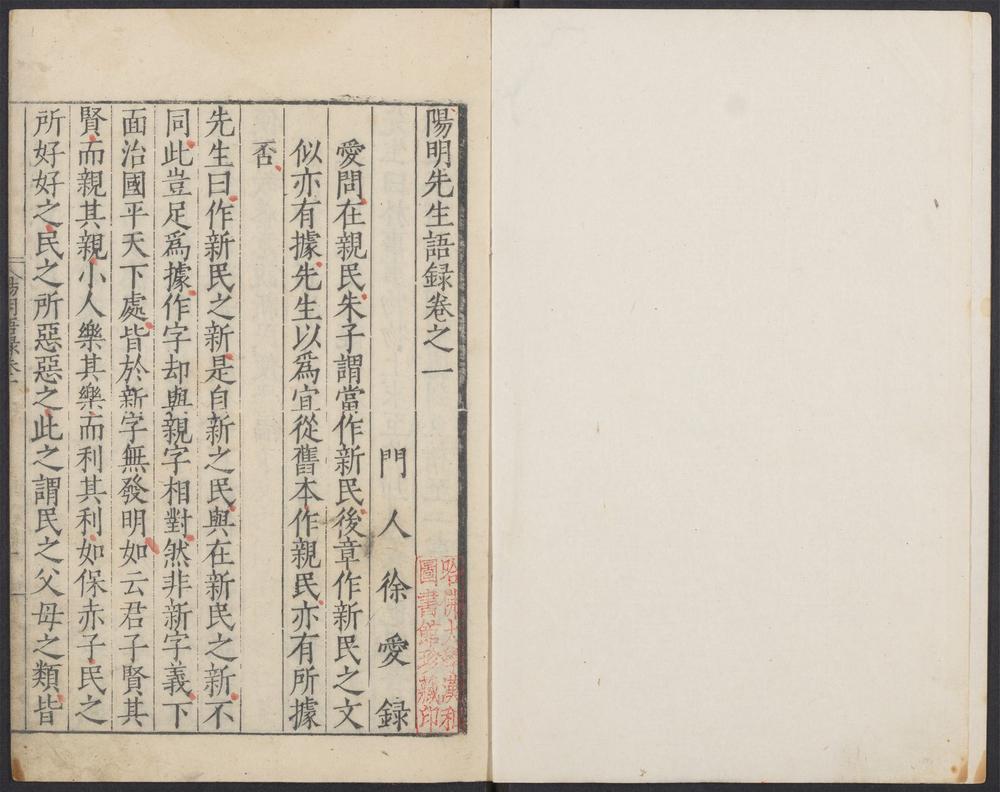 陽明先生語録卷之一
門人徐愛録
愛問在親民朱子謂當作新民後章作新民之文
似亦有據先生以爲宜從舊本作親民亦有所據
否
先生曰作新民之新是自新之民與在新民之新不
同此豈足爲據作字却與親字相對然非新字義下
面治國平天下處皆於新字無發明如云君子賢其
賢而親其親小人樂其樂而利其利如保赤子民之
所好好之民之所惡惡之此之謂民之父母之類皆
哈佛大學漢和
圖書館珍藏印